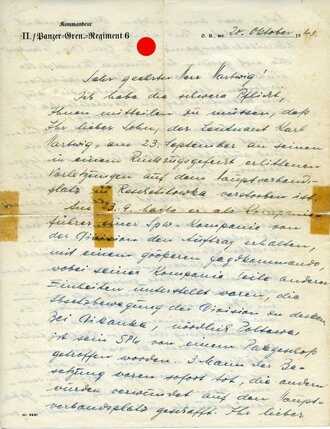 Kommandeur
II./Panzer-Gren.-Regiment 6
O. U., den 20. Oktober 1943.
Sehr geehrter Herr Hartwig!
Ich habe die schwere Pflicht,
Ihnen mitteilen zu müssen, daß
Ihr lieber Sohn, der Leutnant Karl
Hartwig, am 23. September an seinen
in einem Rückzugsgefecht erlittenen
Verletzungen auf dem Hauptverbands-
platz in Reschetilowka verstorben ist.
Am 23. 9. hatte er als Kompanie-
führer einer Spw-Kompanie von
der Division den Auftrag erhalten,
mit einem größeren Jagdkommando
wobei seiner Kompanie Teile anderer
Einheiten unterstellt waren, die
Absetzbewegung der Division zu decken.
Bei Dikanka, nördlich Poltawa,
ist sein SPW von einem Pakgeschoß
getroffen worden. 3 Mann der Be-
satzung waren sofort tot, die andern
wurden verwundet auf den Haupt-
verbandsplatz geschafft. Ihr lieber